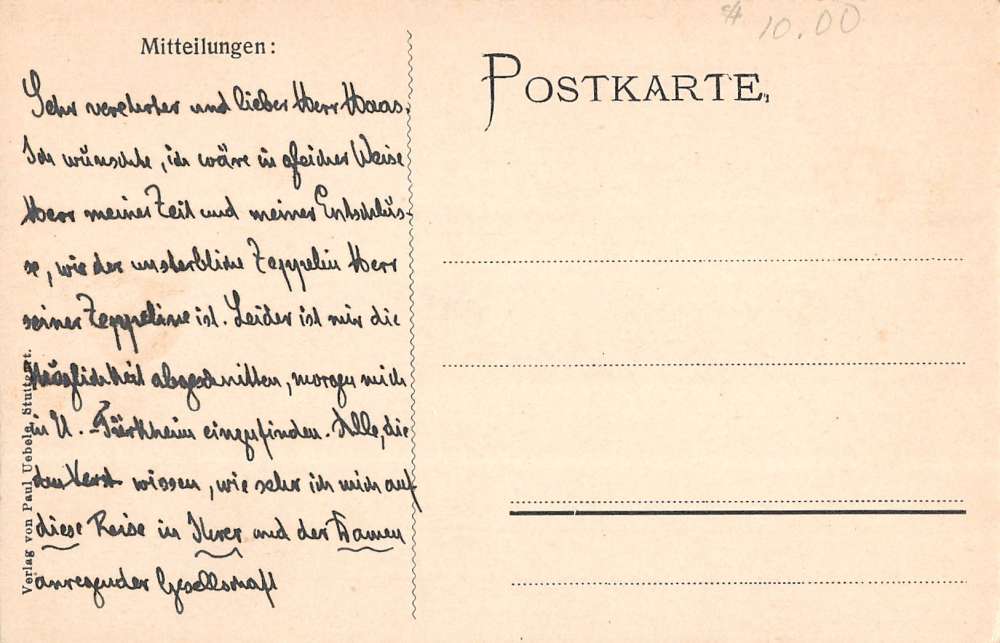 # 10.00
Mitteilungen:
POSTKARTE.
Sehr verehrter und lieber Herr Haas.
Ich wünschte, ich wäre in gleicher Weise
Herr meiner Zeit und meiner Entschlüs-
se, wie der unsterbliche Zeppelin Herr
seiner Zeppeline ist. Leider ist mir die
Möglichkeit abgeschnitten, morgen mich
in U.-Türkheim einzufinden. Alle, die
wissen, wie sehr ich mich auf
diese Reise in Ihrer und der Damen
anregender Gesellschaft
Verlag von Paul Uebele, Stuttgart.